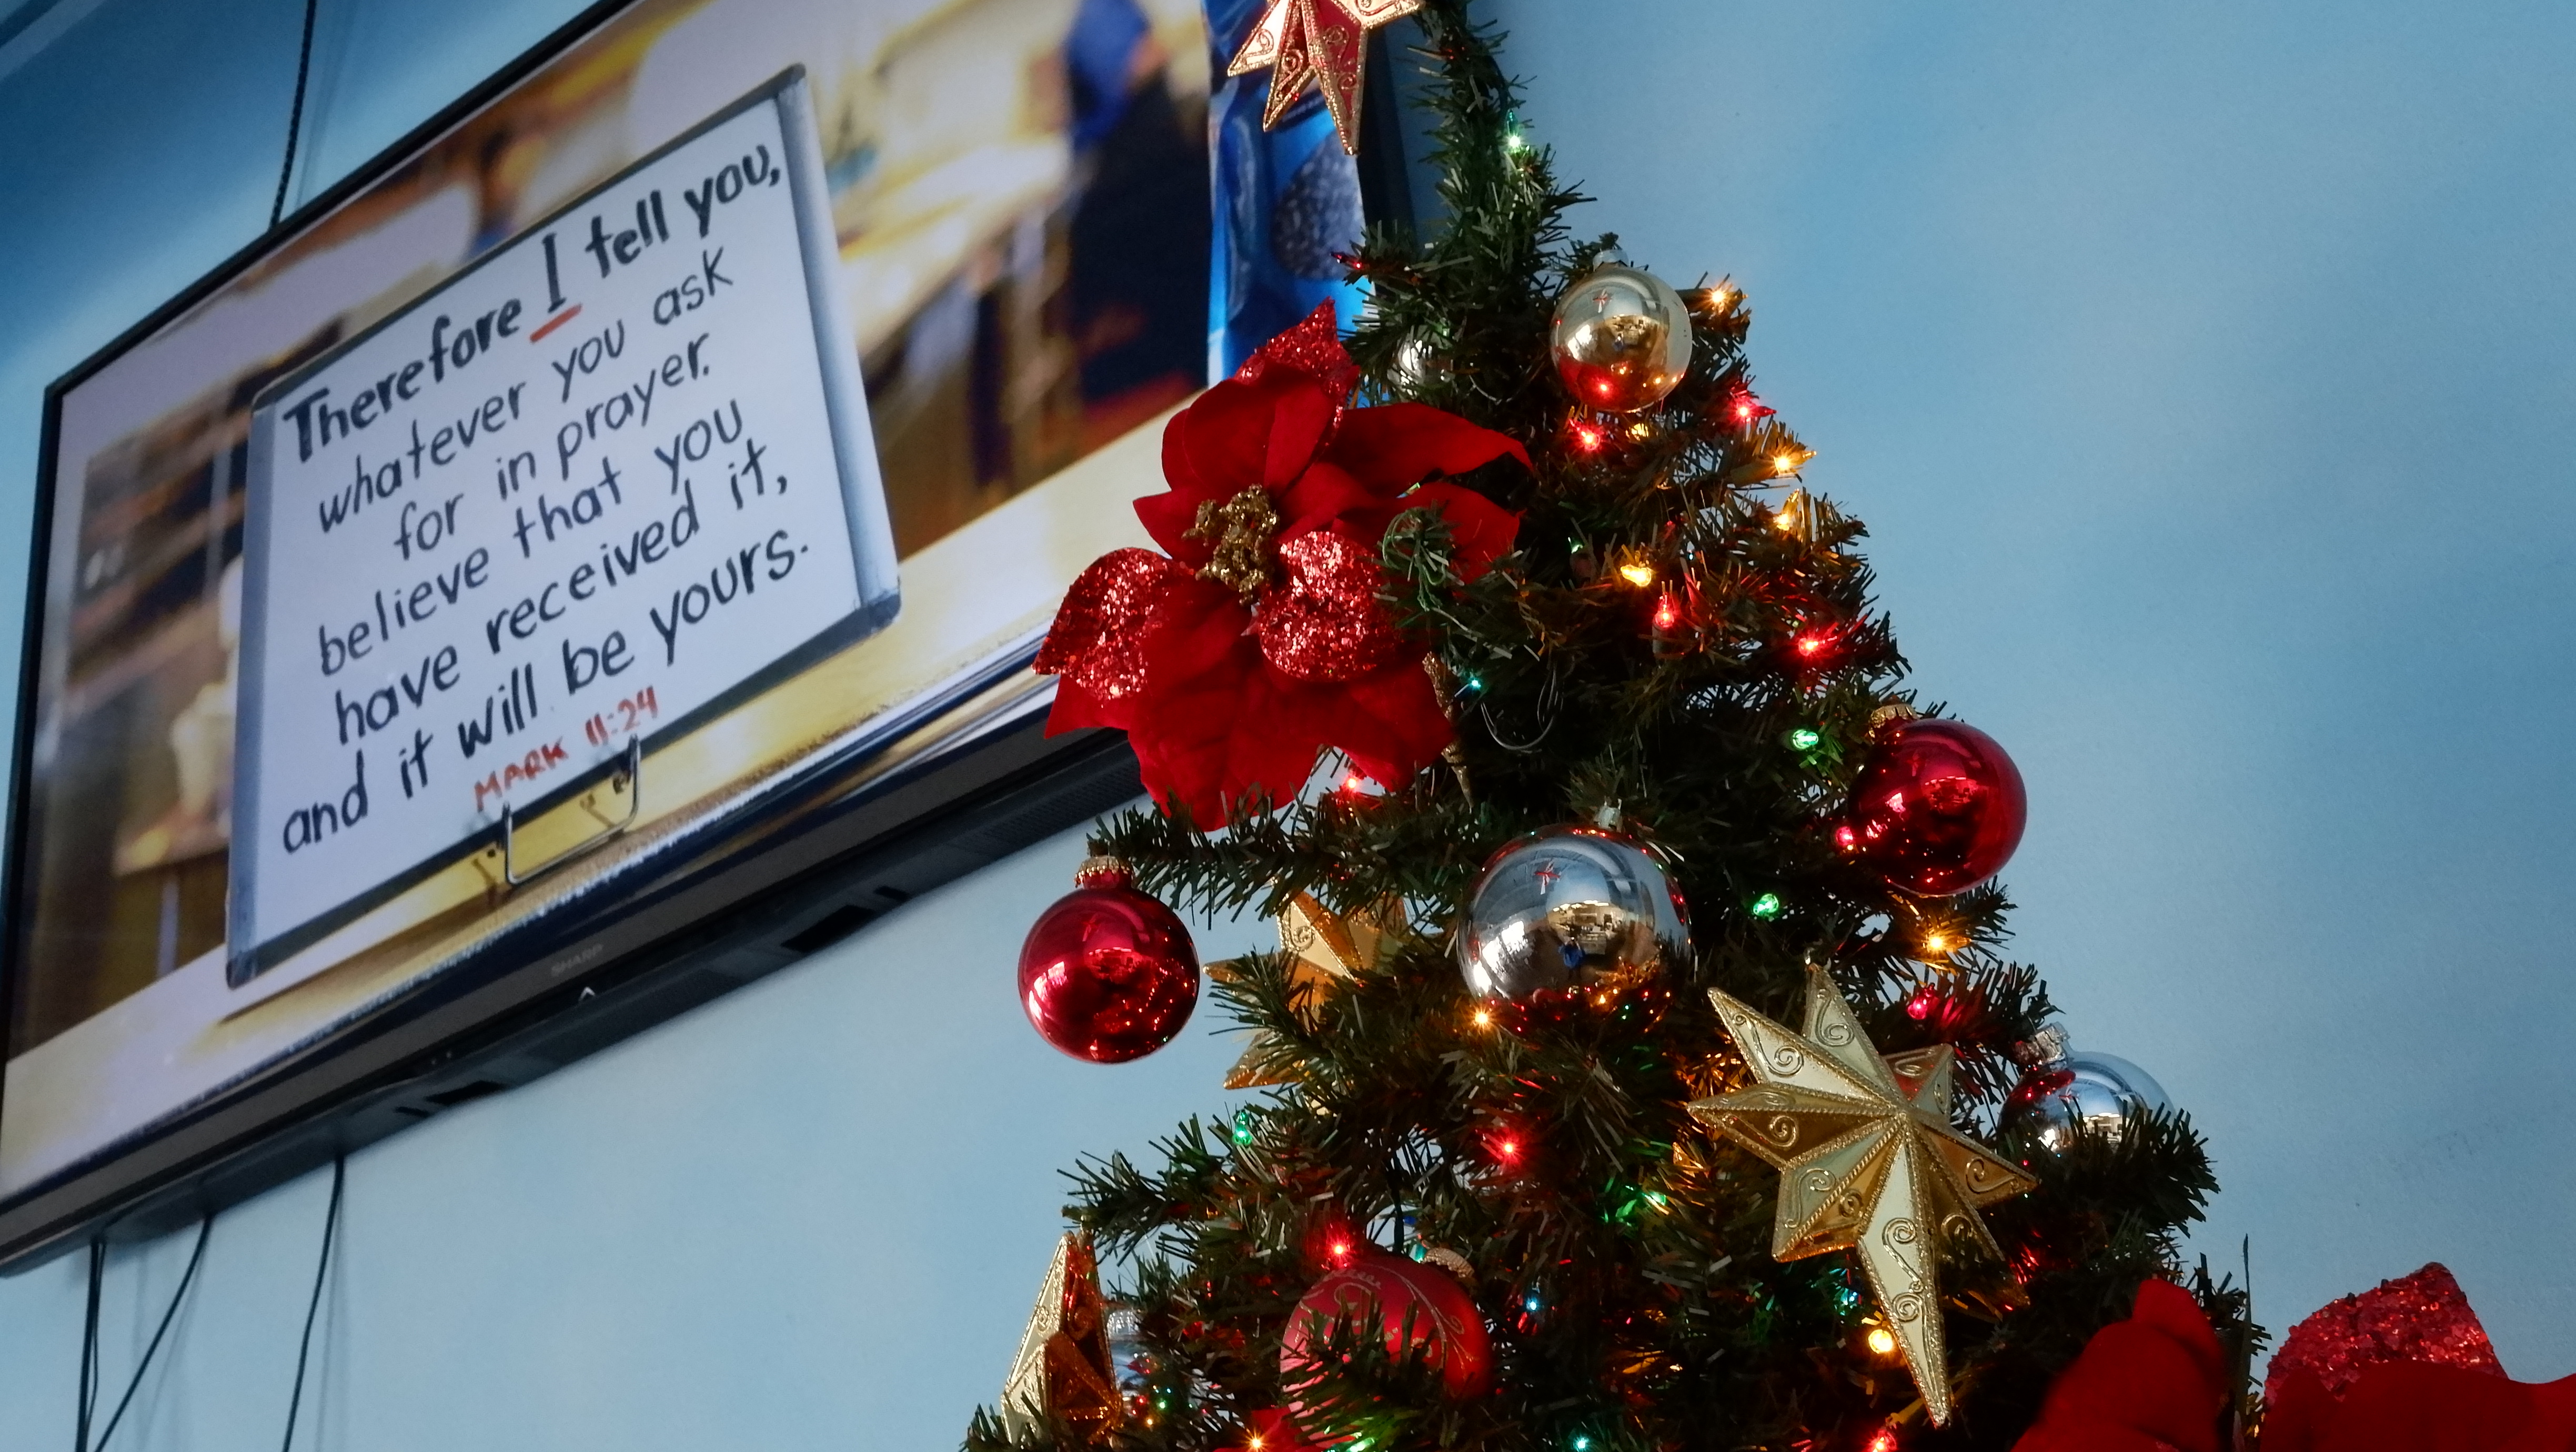 Therefore I tell you,
whatever you ask
for in prayer.
believe that you
have received it,
and it will be yours.
MARK 11:24
SHARP